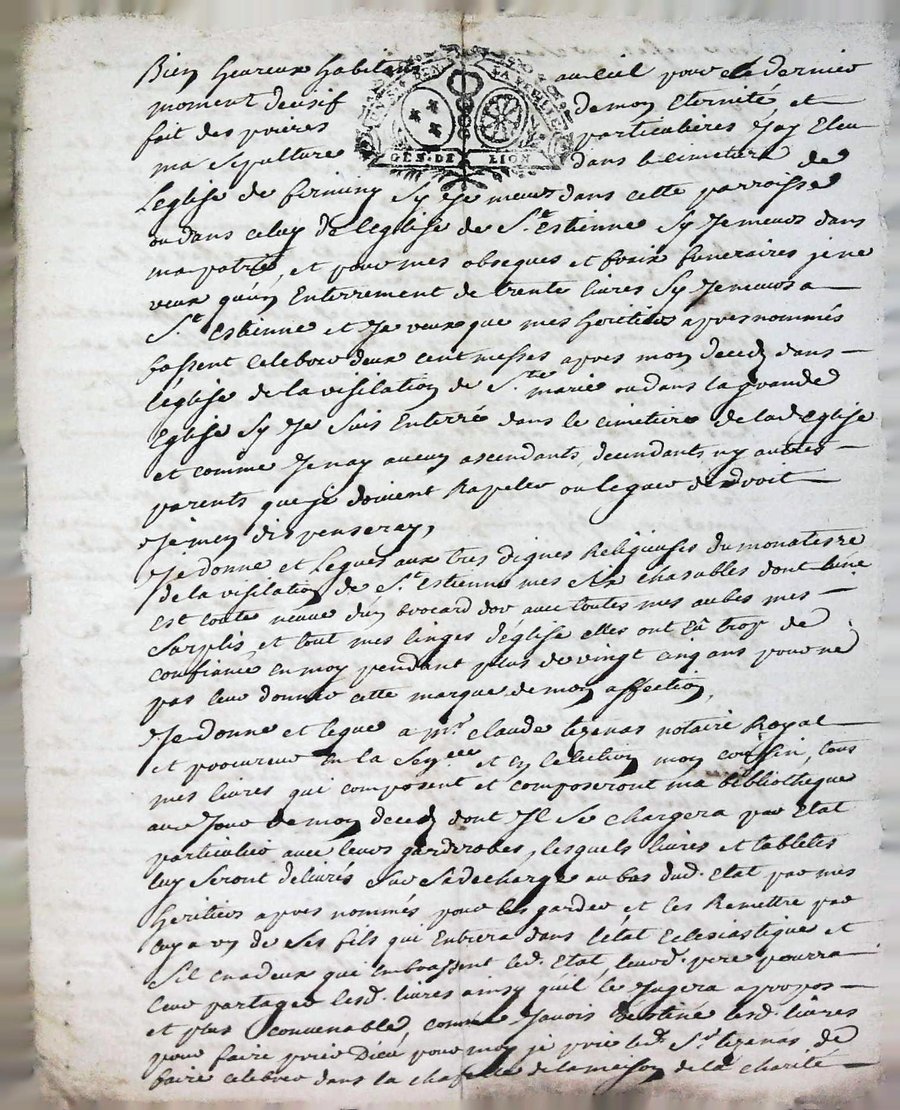 Bien heureux habitans au ciel pour le dernier
moment decisif de mon Eternité et
fait des prieres particulieres Jay Eleu
ma Sepulture dans le cimetiere de
GEN. DE LION
L'eglise de firminy Sy Je meurs dans cette parroisse
ou dans celuy de l'eglise de St. Estienne Sy Je meurs dans
ma patrie, et pour mes obseques et fraix funeraires je ne
veux qu'un Enterrement de trente livres Sy Je meurs a
St Estienne et Je veux que mes heritiers apres nommés
fassent celebrer deux cent messes apres mon deced dans
l'eglise de la visitation de Ste. marie ou dans la grande
Eglise Sy Je Suis Enterré dans le cimetiere de lad. Eglise
et comme Je nay aucun ascendants, decendants ny autres
parents que je doivent Rapeler ou leguer de droit
Je m'en dispenseray,
Je donne et Legue aux tres dignes Religieuses du monastere
de la visitation de St. Estienne mes six chasubles dont l'une
est toute neuve d'un brocard d'or avec toutes mes aubes mes
Surplis et tout mes linges d'église elles ont Eû trop de
confiance en moy pendant plus de vingt cinq ans pour ne
pas leur donner cette marque de mon affection,
Je donne et legue a Mr. claude tezenas notaire Royal
et procureur En la Seneee. et En l'election mon cousin, tous
mes livres qui composent et composeront ma bibliotheque
au Jour de mon deced dont Jl Se chargera par Etat
particulier avec leurs garderobes, lesquels livres et tabletes
luy Seront delivrés Sur Sa decharge au bas dud. etat par mes
heritiers apres nommés pour les garder et les Remettre par
luy a un de Ses fils qui Entrera dans l'état Eclesiastique et
S'il en a deux qui embrassent led. Etat leurd. pere pourra
leur partager lesd. livres ainsy quil le Jugera apropos
et plus convenable, comme J'avois destiné lesd. livres
pour faire prier Dieu pour moy je prie led. Sr. tezenas de
faire celebrer dans la chapelle de la maison de la charité